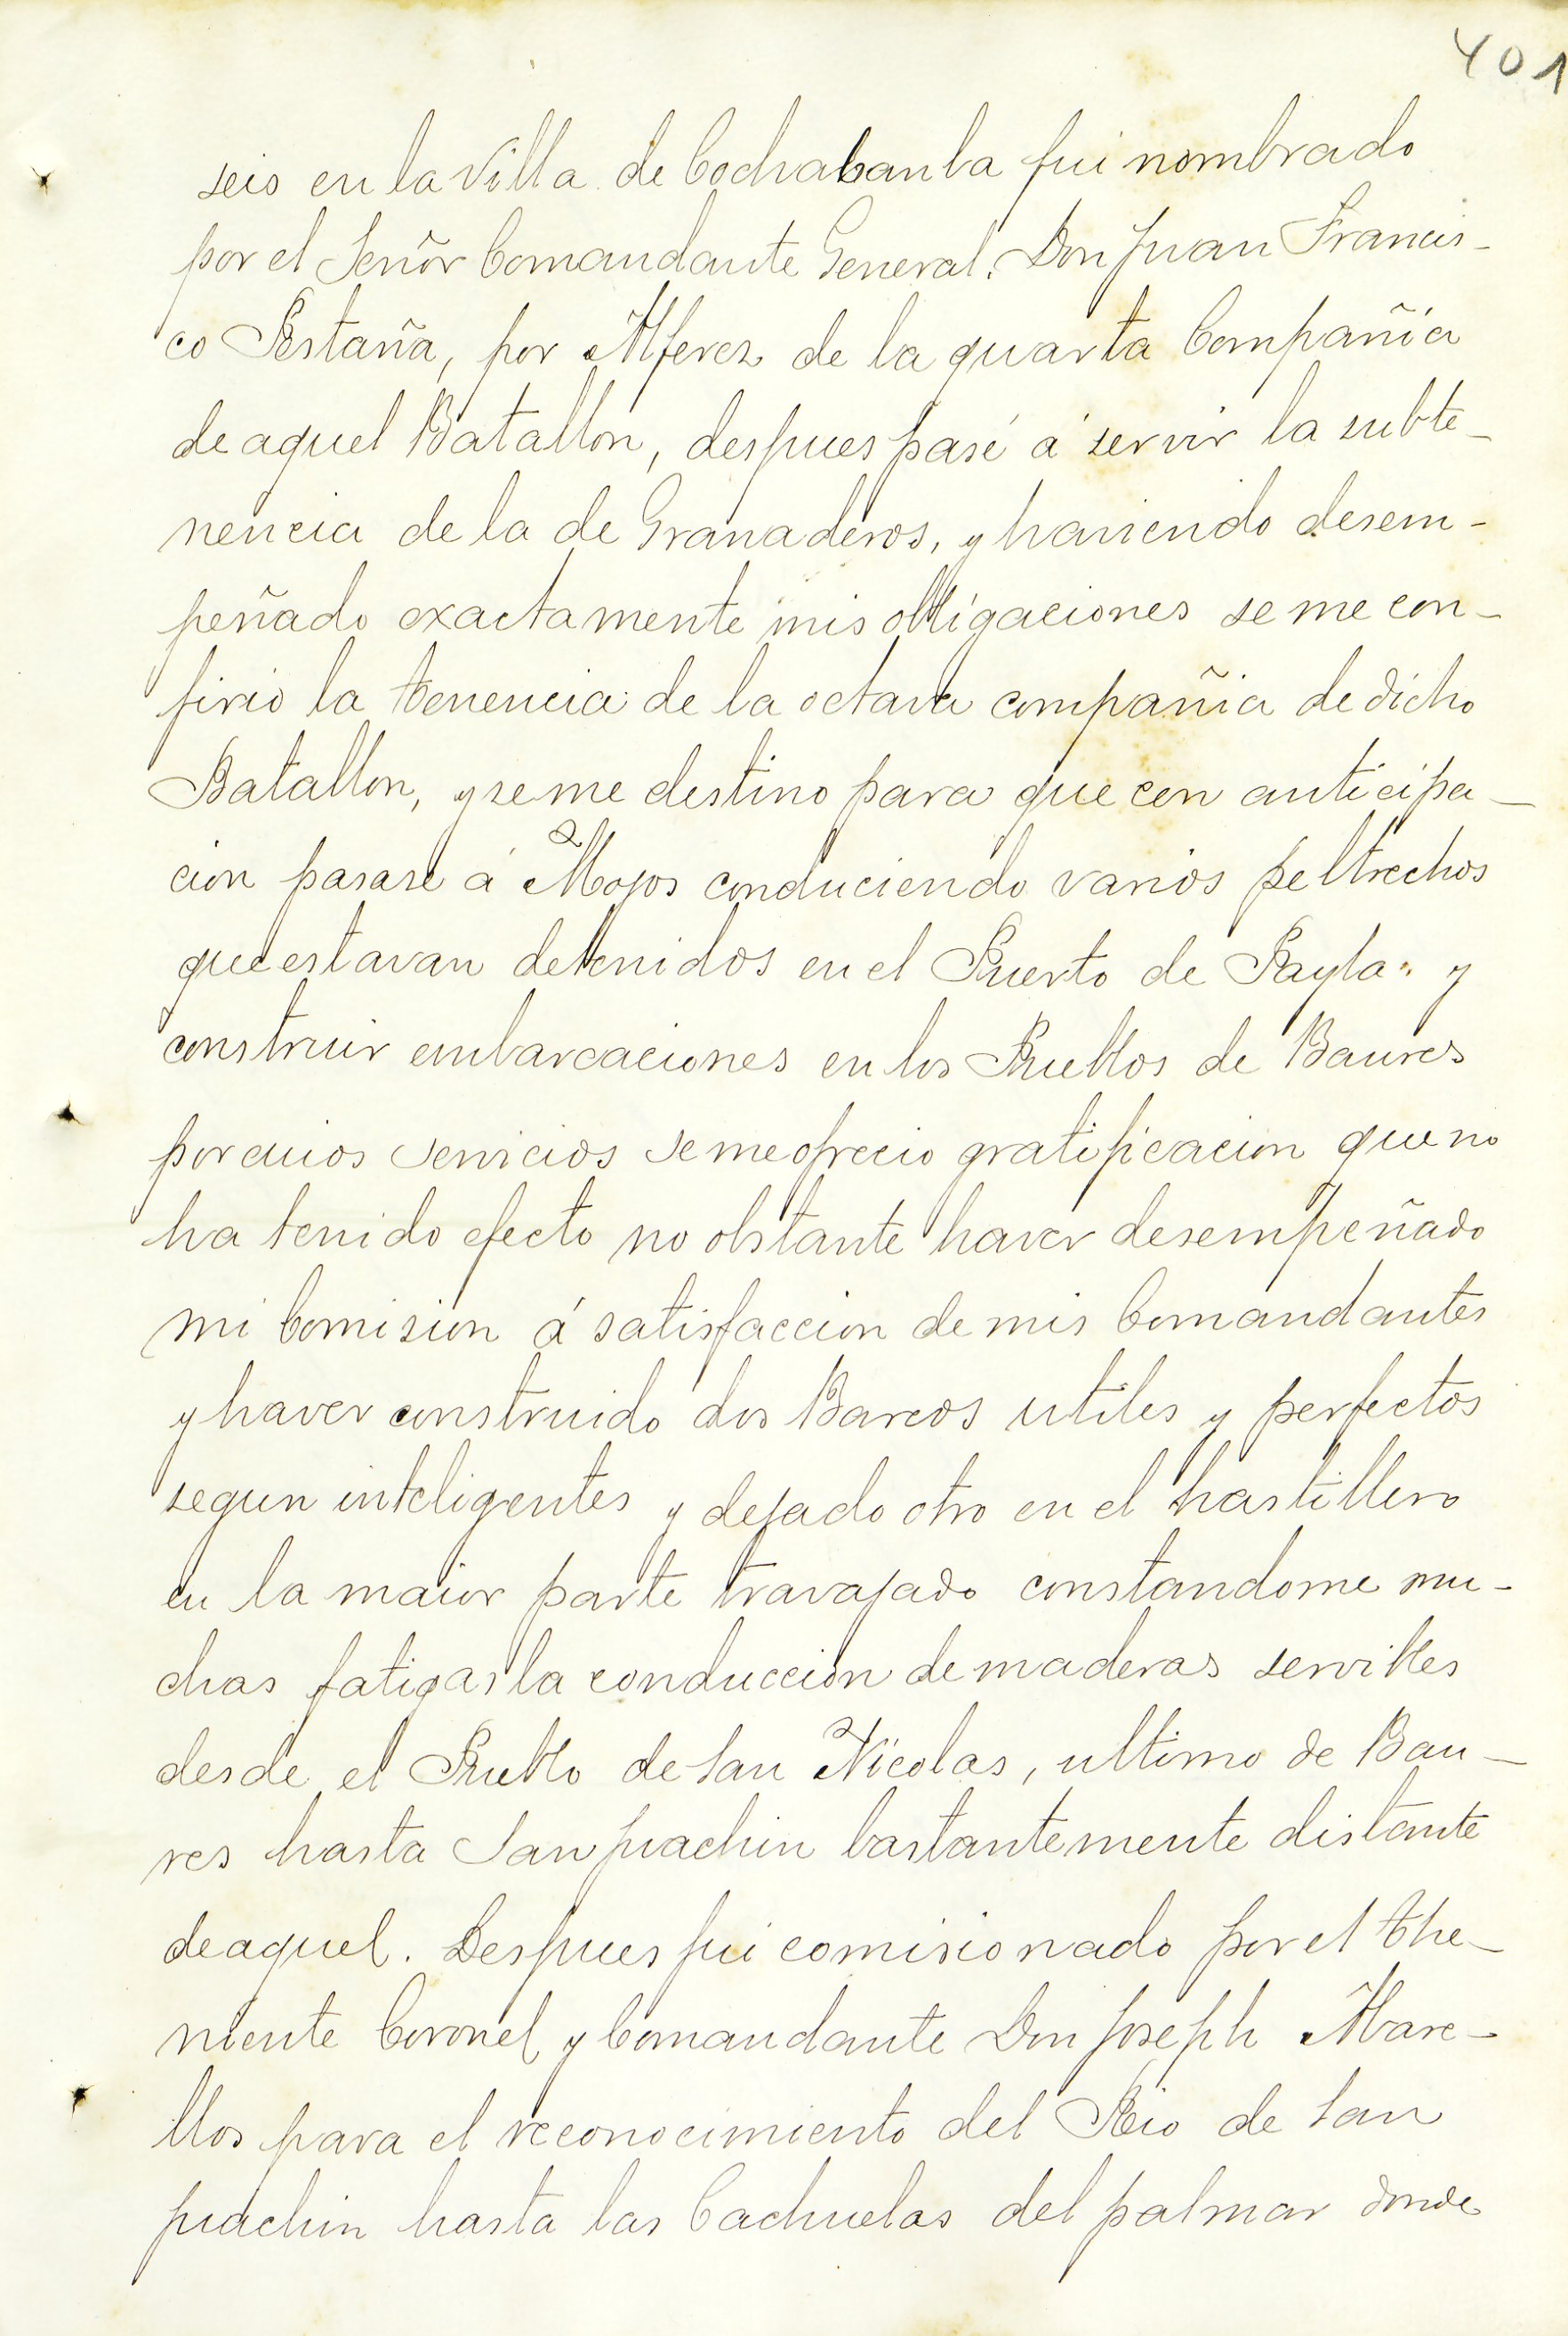 401
seis en la Villa de Cochabanba fui nombrado
por el Señor Comandante General, Don Juan Francis-
co Pestaña, por Alferez de la quarta Compañia
de aquel Batallon, despues pasé á servir la subte-
nencia de la de Granaderos, y haviendo desem-
peñado exactamente mis obligaciones se me con-
firio la tenencia de la octava compañia de dicho
Batallon, y se me destino para que con anticipa-
cion pasase á Moxos conduciendo varios peltrechos
que estavan detenidos en el Puerto de Payla y
construir embarcaciones en los Pueblos de Baures
por cuios servicios se me ofrecio gratificacion que no
ha tenido efecto no obstante haver desempeñado
mi Comision á satisfaccion de mis Comandantes
y haver construido dos Barcos utiles y perfectos
segun inteligentes y dejado otro en el hastillero
en la maior parte travajado constandome mu-
chas fatigas la conduccion de maderas servibles
desde el Pueblo de San Nicolas, ultimo de Bau-
res hasta San Juachin bastantemente distante
de aquel. Despues fui comisionado por el The-
niente Coronel y Comandante Don Joseph Mare-
llos para el reconocimiento del Rio de San
Juachin hasta las Cachuelas del palmar donde